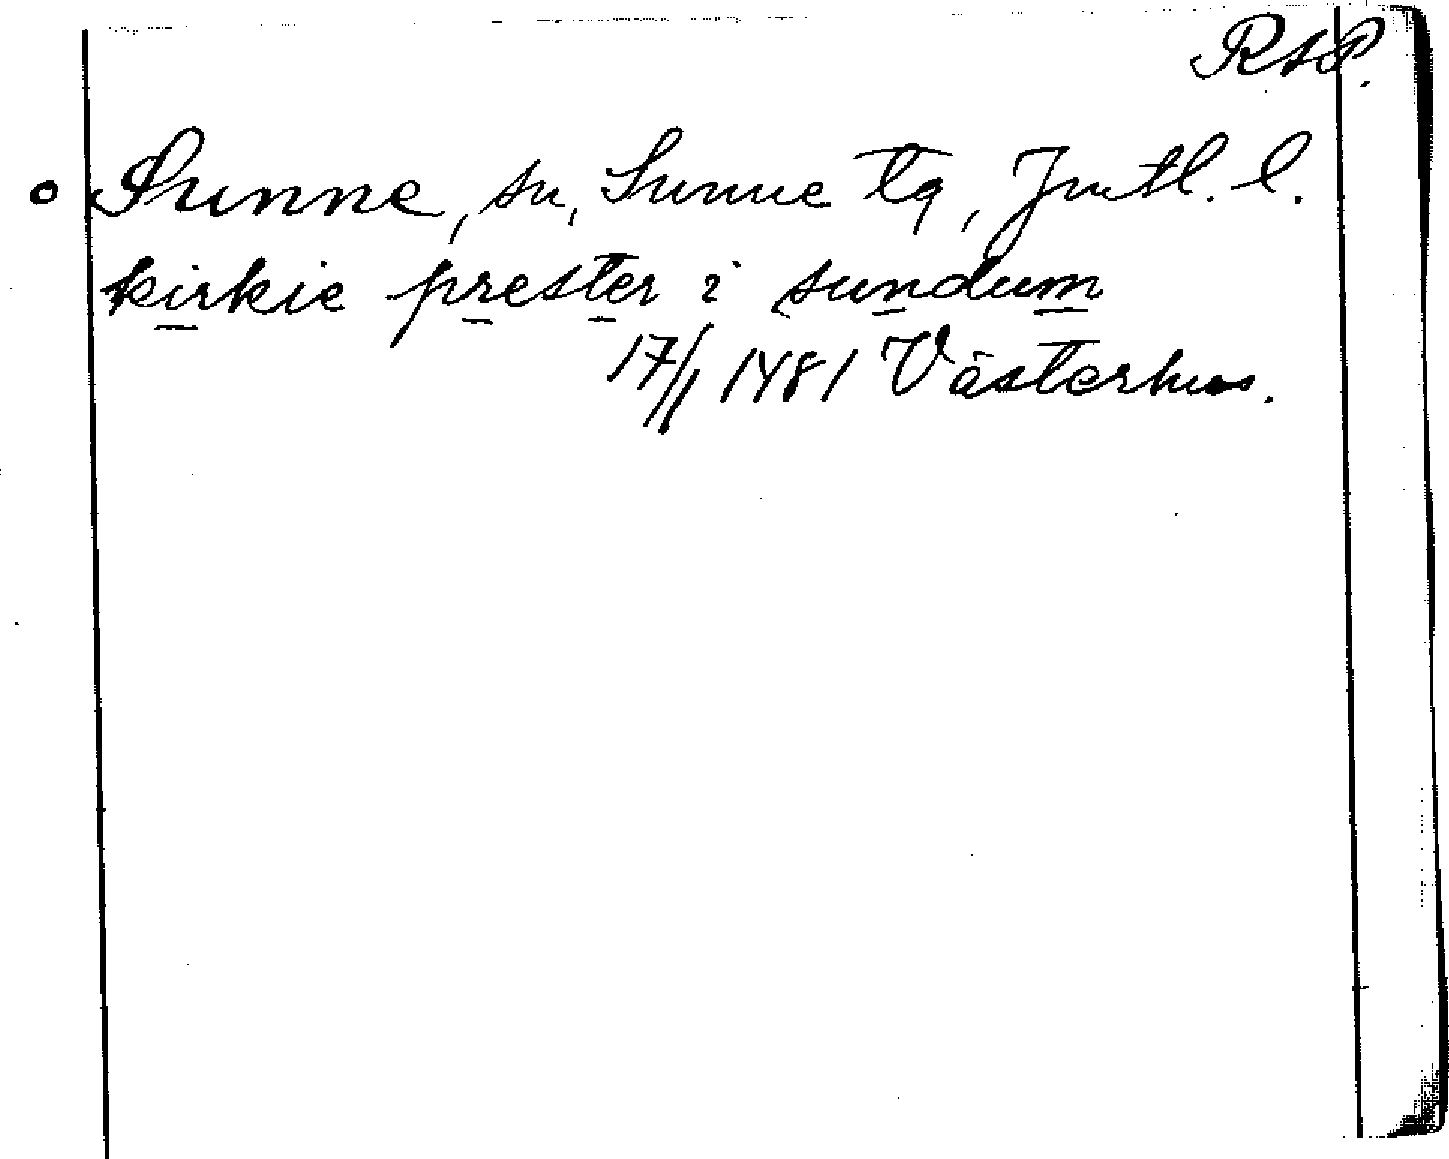 RAP.
Sunne, sn, Sunne tg, Jmtl. l.
kirkie prester i sundum
17/11 1481 Västerhus.